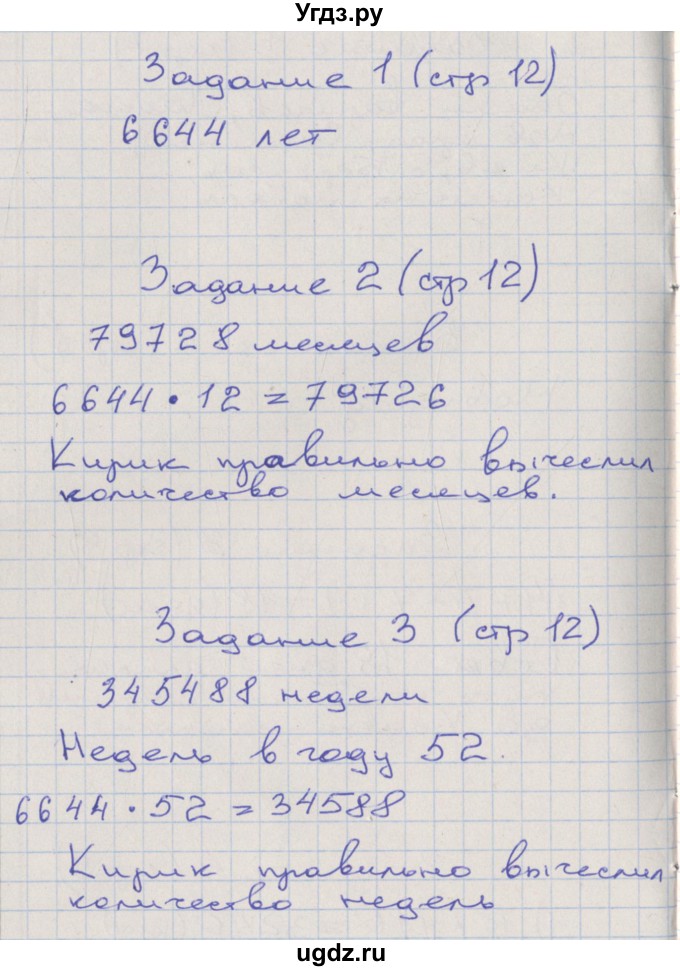 Угдз.ру
Задание 1 (стр 12)
6644 лет
Задание 2 (стр 12)
79728 месяцев
6644 · 12 = 79726
Кирик правильно вычеслил
количество месяцев.
Задание 3 (стр 12)
345488 недели
Недель в году 52.
6644 · 52 = 34588
Кирик правильно вычеслил
количество недель
ugdz.ru